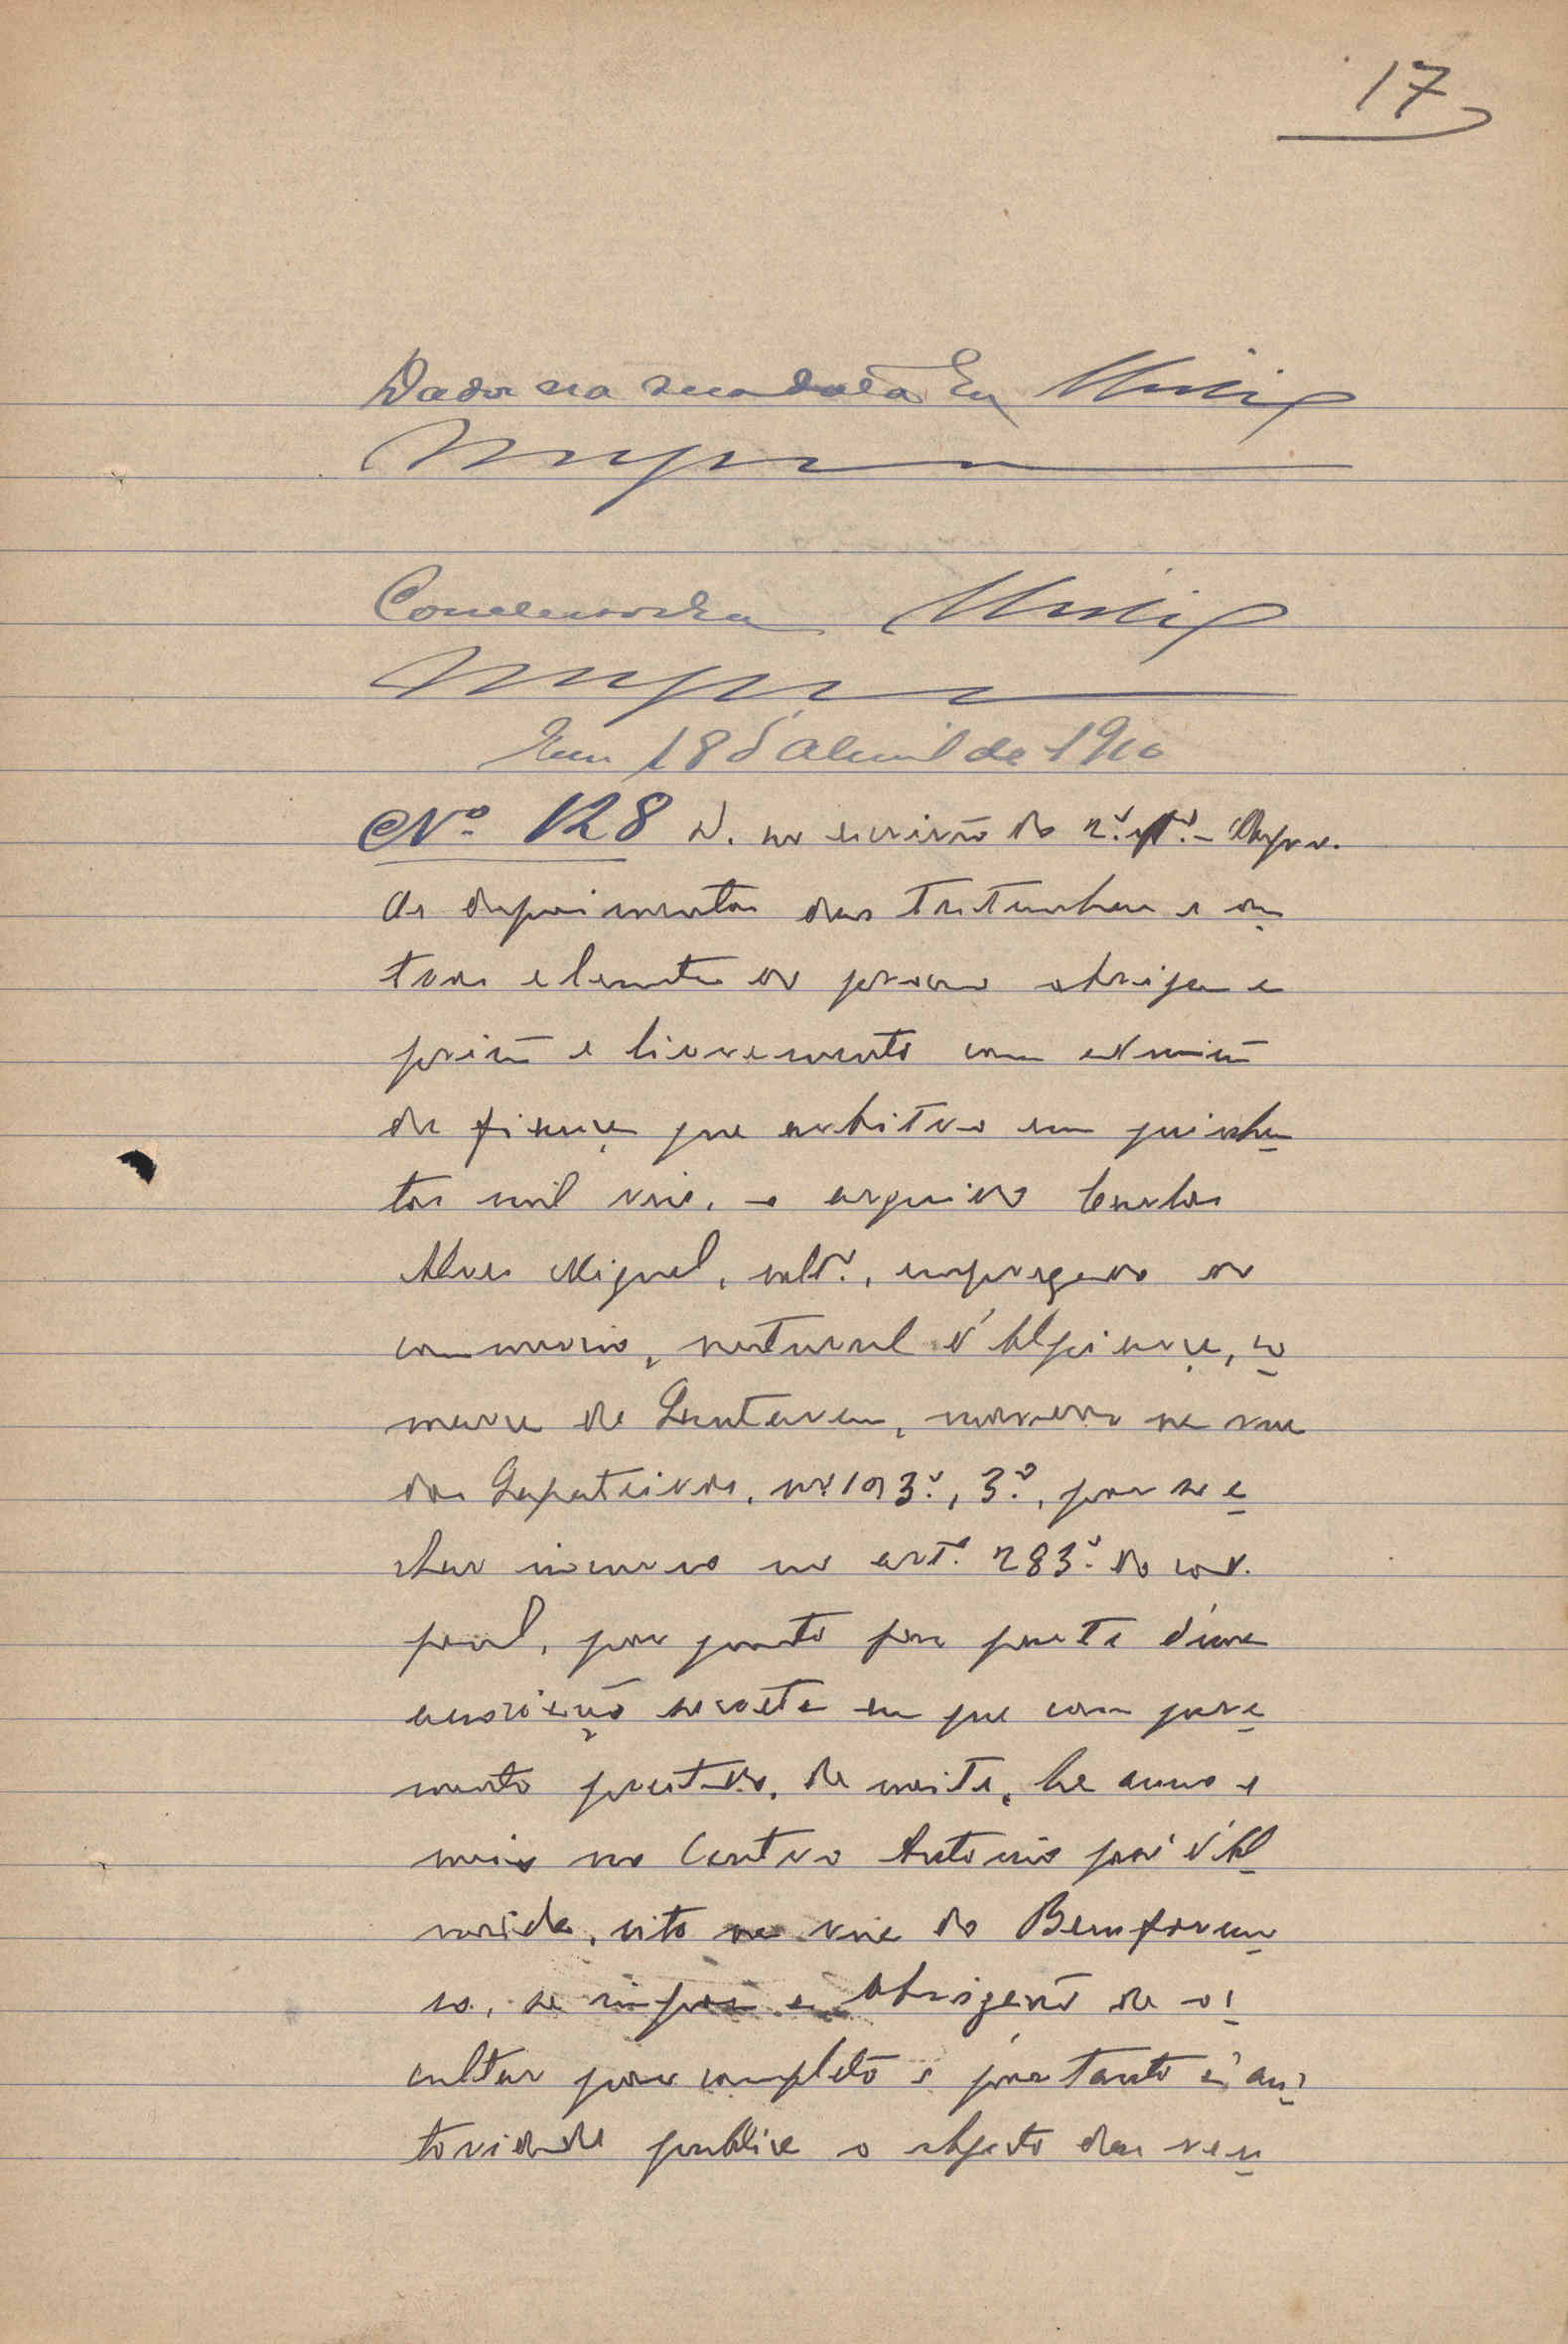 17
Dada na mesma data Eu
Conclusos Eu
Em 18 d'Abril de 1910
Nº 128 D. no escrivão do 2º of.º - Despro.
Os depoimentos das testemunhas e ou
tros elementos do processo obrigam a
prisão e livramento com admissão
de fiança que arbitro em quinhen
tos mil reis, o arguido Carlos
Alves Miguel, soltº, empregado do
commercio, natural d'Alpiarça, co
marca de Santarem, morador na rua
dos Sapateiros, nº 193º, 3º, por se a
char incurso no artº 283º do cod.
penal, por quanto faz parte d'uma
associação secreta em que com jura
mento prestado, de noite, ha anno e
meio no Centro Antonio José d'Al
meida, sito na rua do Bemformo
so, se impoz a obrigação de oc
cultar por completo e portanto á au
toridade publica o objecto das reu